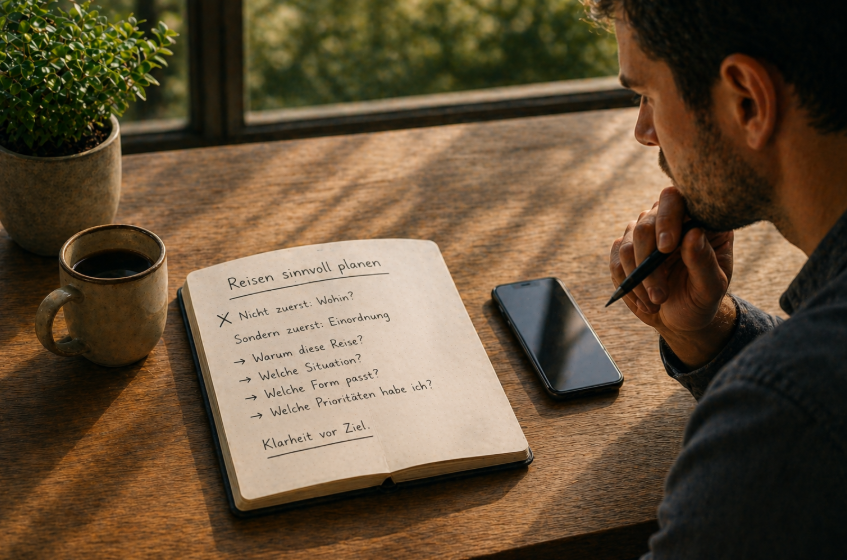 Reisen sinnvoll planen
X Nicht zuerst: Wohin?
Sondern zuerst: Einordnung
→ Warum diese Reise?
→ Welche Situation?
→ Welche Form passt?
→ Welche Prioritäten habe ich?
Klarheit vor Ziel.